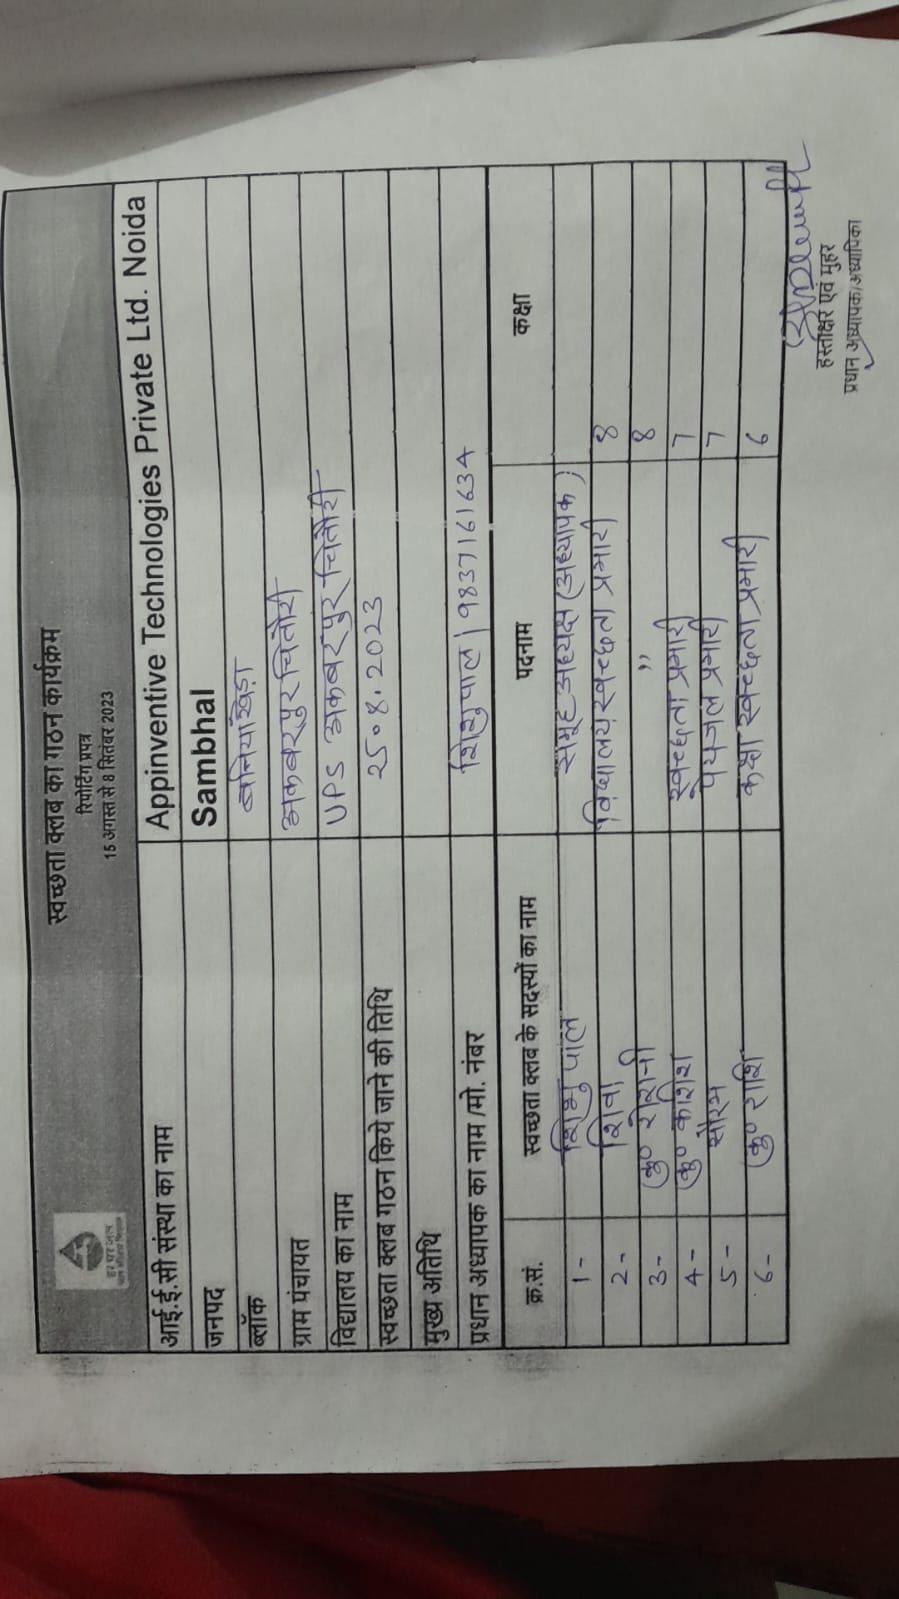 हर घर जल
स्वच्छता क्लब का गठन कार्यक्रम
रिपोर्टिंग प्रपत्र
15 अगस्त से 8 सितंबर 2023
आई.ई.सी संस्था का नाम Appinventive Technologies Private Ltd. Noida
जनपद Sambhal
ब्लॉक बनियाखेड़ा
ग्राम पंचायत अकबरपुर चितौरी
विद्यालय का नाम UPS अकबरपुर चितौरी
स्वच्छता क्लब गठन किये जाने की तिथि 25.8.2023
मुख्य अतिथि
प्रधान अध्यापक का नाम/मो. नंबर शिशुपाल | 9837161634
क्र.सं. स्वच्छता क्लब के सदस्यों का नाम पदनाम कक्षा
1- शिशु पाल समूह अध्यक्ष (अध्यापक)
2- शिवा विद्यालय स्वच्छता प्रभारी 8
3- कु० रोशनी " 8
4- कु० कशिश स्वच्छता प्रभारी 7
5- सौरभ पेयजल प्रभारी 7
6- कु० राशि कक्षा स्वच्छता प्रभारी 6
हस्तीक्षर एवं मुहर
प्रधान अध्यापक/अध्यापिका